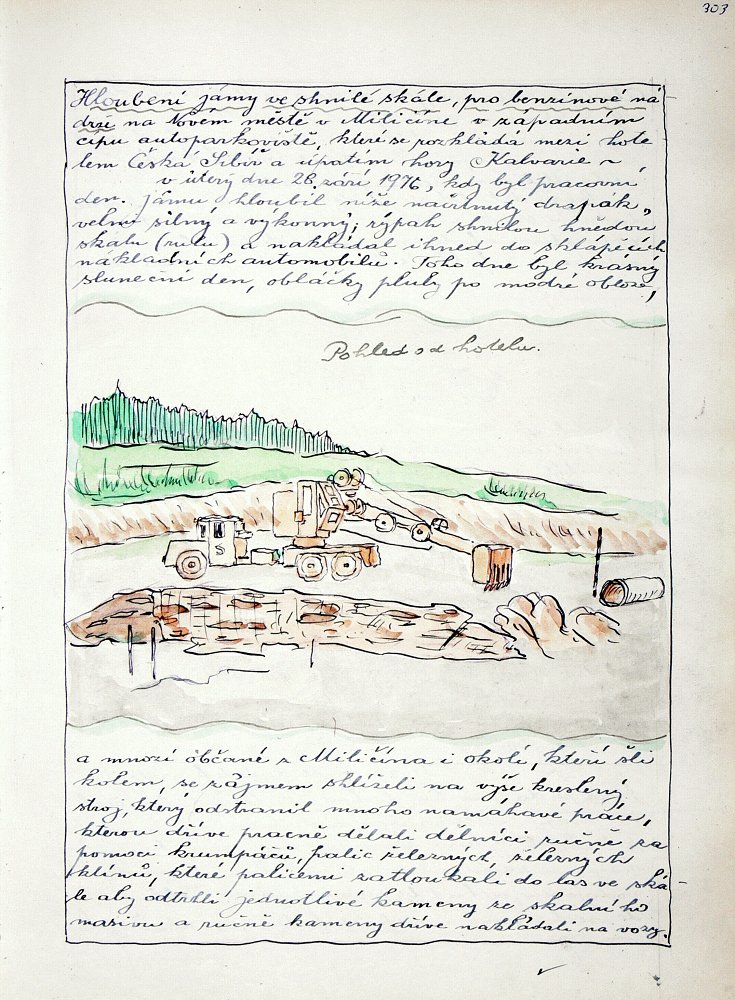 303
Hloubení jámy ve shnilé skále, pro benzinové ná-
drže na Novém městě v Miličíně v západním
cípu autoparkoviště, které se rozkládá mezi hote-
lem Česká Sibiř a úpatím hory Kalvarie ~
v úterý dne 28. září 1976, kdy byl pracovní
den. Jámu hloubil níže načrtnutý drapák,
velmi silný a výkonný; rýpal shnilou hnědou
skálu (rulu) a nakládal ihned do sklápěcích
nákladních automobilů. Toho dne byl krásný
sluneční den, obláčky pluly po modré obloze,
Pohled od hotelu.
S
a mnozí občané z Miličína i okolí, kteří šli
kolem, se zájmem shlíželi na výše kreslený
stroj, který odstranil mnoho namáhavé práce,
kterou dříve pracně dělali dělníci ručně za
pomoci krumpáčů, palic železných, železných
klínů, které palicemi zatloukali do las ve ská-
le aby odtrhli jednotlivé kameny ze skalního
masivu a ručně kameny dříve nakládali na vozy.